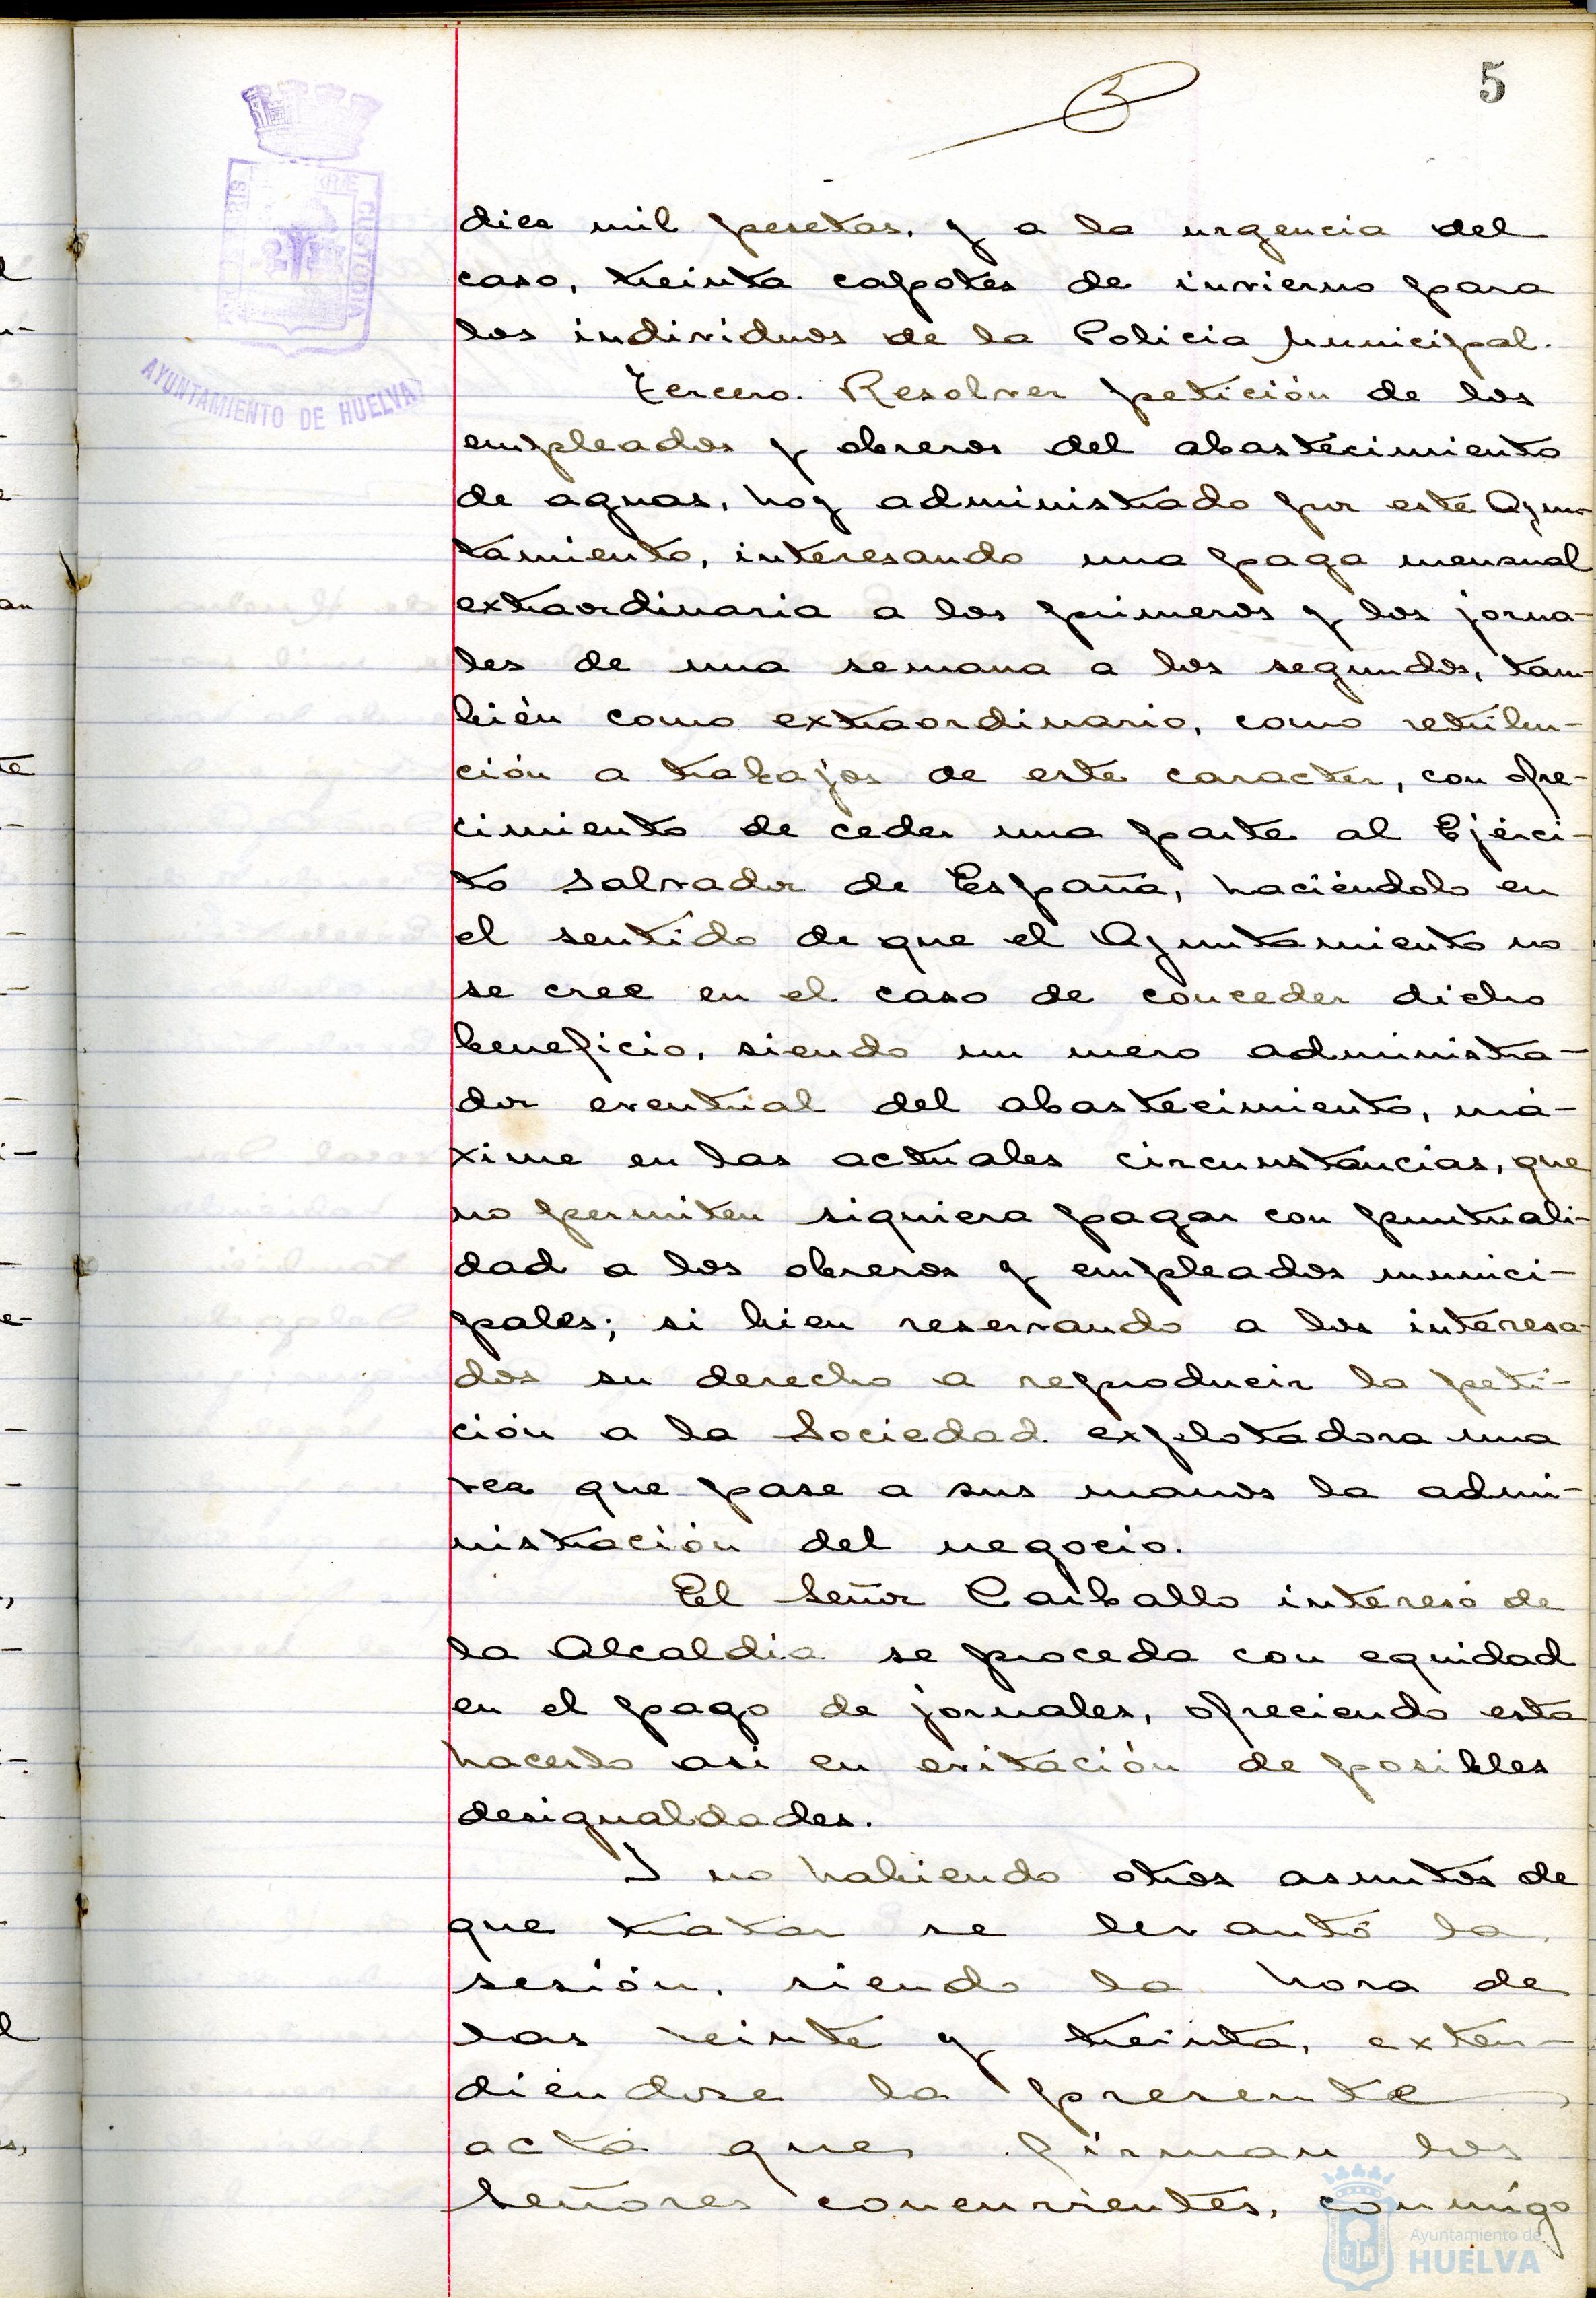 5
diez mil pesetas, y a la urgencia del
caso, treinta capotes de invierno para
los individuos de la Policia Municipal.
Tercero. Resolver petición de los
empleados y obreros del abastecimiento
de aguas, hoy administrado por este Ayun-
tamiento, interesando una paga mensual
extraordinaria a los primeros y los jorna-
les de una semana a los segundos, tam-
bién como extraordinario, como retribu-
ción a trabajos de este caracter, con ofre-
cimiento de ceder una parte al Ejérci-
to Salvador de España, haciéndolo en
el sentido de que el Ayuntamiento no
se cree en el caso de conceder dicho
beneficio, siendo un mero administra-
dor eventual del abastecimiento, má-
xime en las actuales circunstancias, que
no permiten siquiera pagar con puntuali-
dad a los obreros y empleados munici-
pales; si bien reservando a los interesa-
dos su derecho a reproducir la peti-
ción a la Sociedad explotadora una
vez que pase a sus manos la admi-
nistración del negocio.
El Señor Carballo interesó de
la Alcaldia se proceda con equidad
en el pago de jornales, ofreciendo esta
hacerlo asi en evitación de posibles
desigualdades.
Y no habiendo otros asuntos de
que tratar se levantó la
sesión, siendo la hora de
las veinte y treinta, exten-
diéndose la presente
acta que firman los
Señores concurrientes, conmigo
AYUNTAMIENTO DE HUELVA
CUSTODIA
Ayuntamiento de
HUELVA